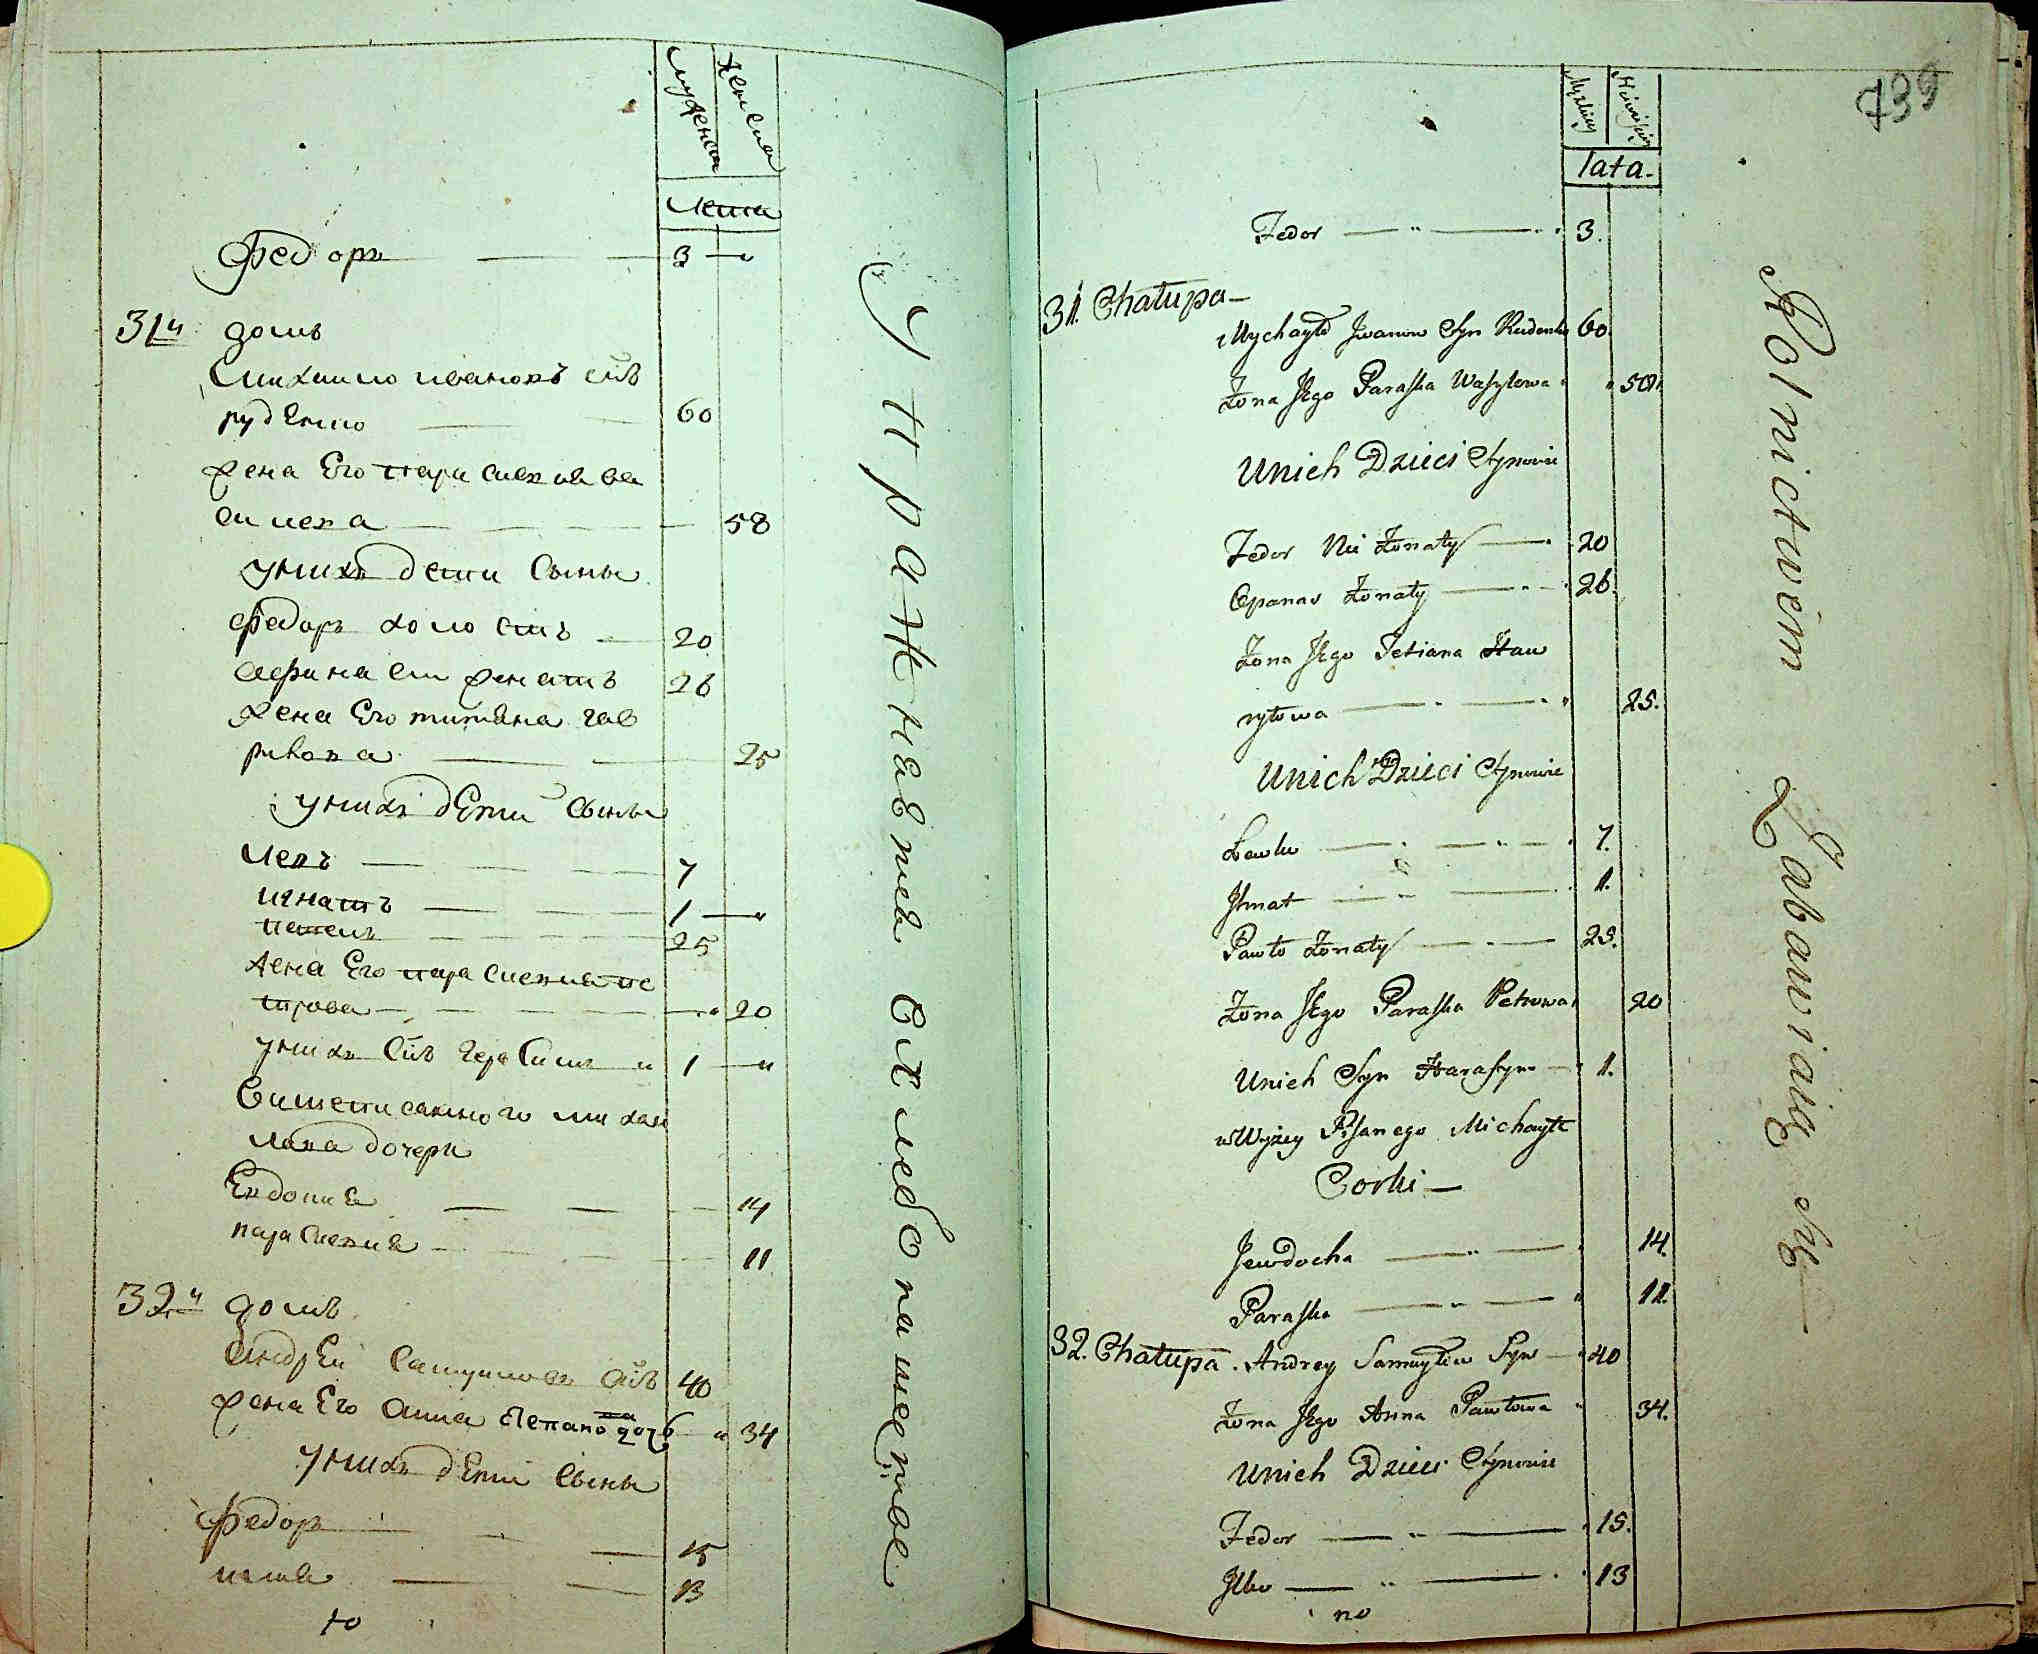 мужеска
женска
лета
Федоръ — — 3 — "
31й домъ
Михаило ивановъ снъ
руденко — — 60
жена Его парасковия ва
силева — — — 58
унихъ дети Сыны
Федоръ холостъ — 20
афанасий женатъ 26
жена Его татияна гав
рилова — — 25
унихъ дети Сыны
левъ — — — 7
игнатъ — — — 1 — "
павелъ — — — 25
жена Его парасковиа пе
трова — — — — " 20
унихъ Снъ герасимъ " 1 — "
Вишеписанного михаи
лова дочери
Евдокия — — — 14
парасковия — — — 11
32й домъ
андрей Самуилова Снъ 40
жена Его анна Степано ва дочъ " 34
унихъ дети Сыны
Федоръ — — — 15
илия — — 13
Упражнавшеся хлебопашеством
739
Męskiey
Żeńskiey
lata.
Fedor — " — " 3.
31. Chałupa —
Mychayło Jwanow Syn Rudenko 60.
Żona Jego Paraska Wasylowa " " 58.
Unich Dzieci Synowie
Fedor Nie Żonaty — 20
Opanas Żonaty — " — 26.
Żona Jego Tetiana Haw
ryłowa — " — " 25.
Unich Dzieci Synowie
Lewko — " — " — 7.
Jhnat — " — 1.
Pawło Żonaty — " — 25.
Żona Jego Paraska Petrowa 20
Unich Syn Harasym — " 1.
wWyżey Pisanego Michayła
Corki —
Jewdocha — " — " 14.
Paraska — " — " 11.
32. Chałupa. Andrey Samuyłow Syn — " 40
Żona Jego Anna Pawłowa " 34.
Unich Dzieci Synowie
Fedor — " — " 15.
Jlko — " — " 13
no
Rolnictwém Zabawiaią się —